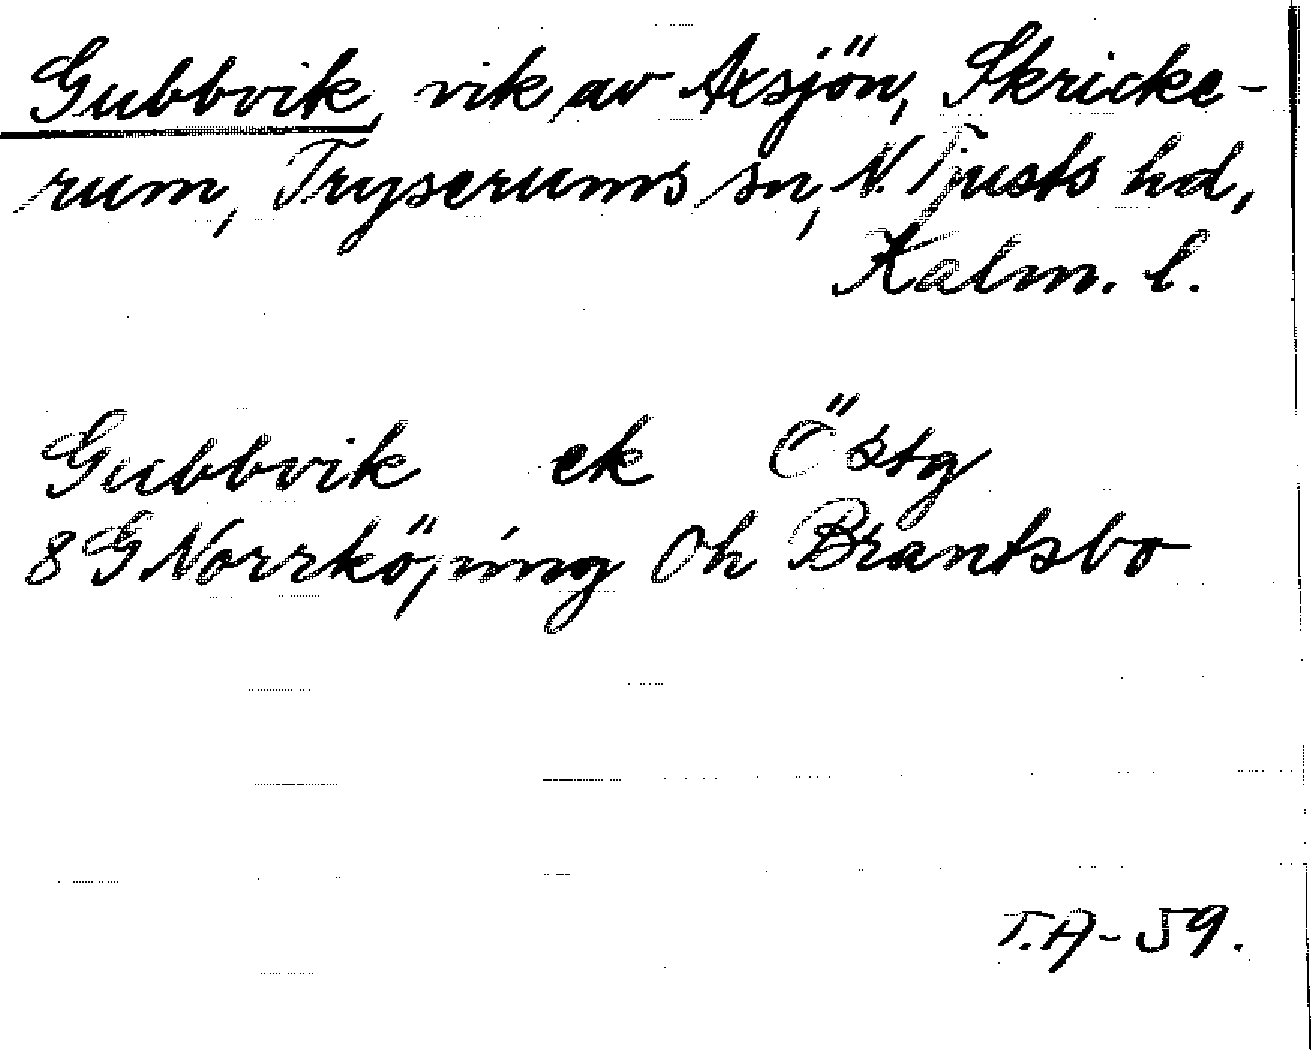 Gubbvik, vik av Axsjön, Skricke-
rum, Tryserums sn, N. Tjusts hd,
Kalm. l.
Gubbvik ek Östg
8 G Norrköping Öh Brantsbo
T.A-59.